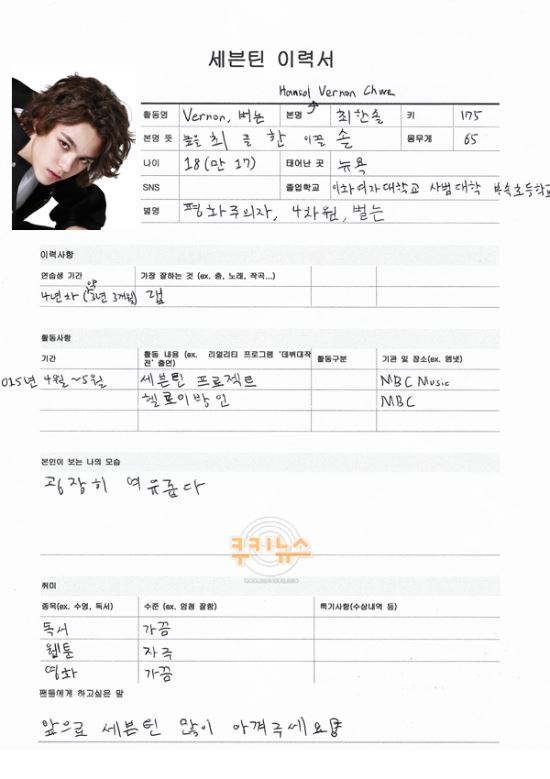 세븐틴 이력서
Hansol Vernon Chwe
활동명 Vernon, 버논 본명 최한솔 키 175
본명 뜻 높을 최 클 한 이끌 솔 몸무게 65
나이 18(만 17) 태어난 곳 뉴욕
SNS 졸업학교 이화여자대학교 사범대학 부속초등학교
별명 평화주의자, 4차원, 벌는
이력사항
연습생 기간 가장 잘하는 것 (ex. 춤, 노래, 작곡...)
4년차 (약 3년 3개월) 랩
활동사항
기간 활동 내용 (ex. 리얼리티 프로그램 '데뷔대작전' 출연) 활동구분 기관 및 장소(ex. 엠넷)
015년 4월~5월 세븐틴 프로젝트 MBC Music
헬로이방인 MBC
본인이 보는 나의 모습
굉장히 여유롭다
쿠키뉴스
취미
종목(ex. 수영, 독서) 수준 (ex. 엄청 잘함) 특기사항(수상내역 등)
독서 가끔
웹툰 자주
영화 가끔
팬들에게 하고싶은 말
앞으로 세븐틴 많이 아껴주세요